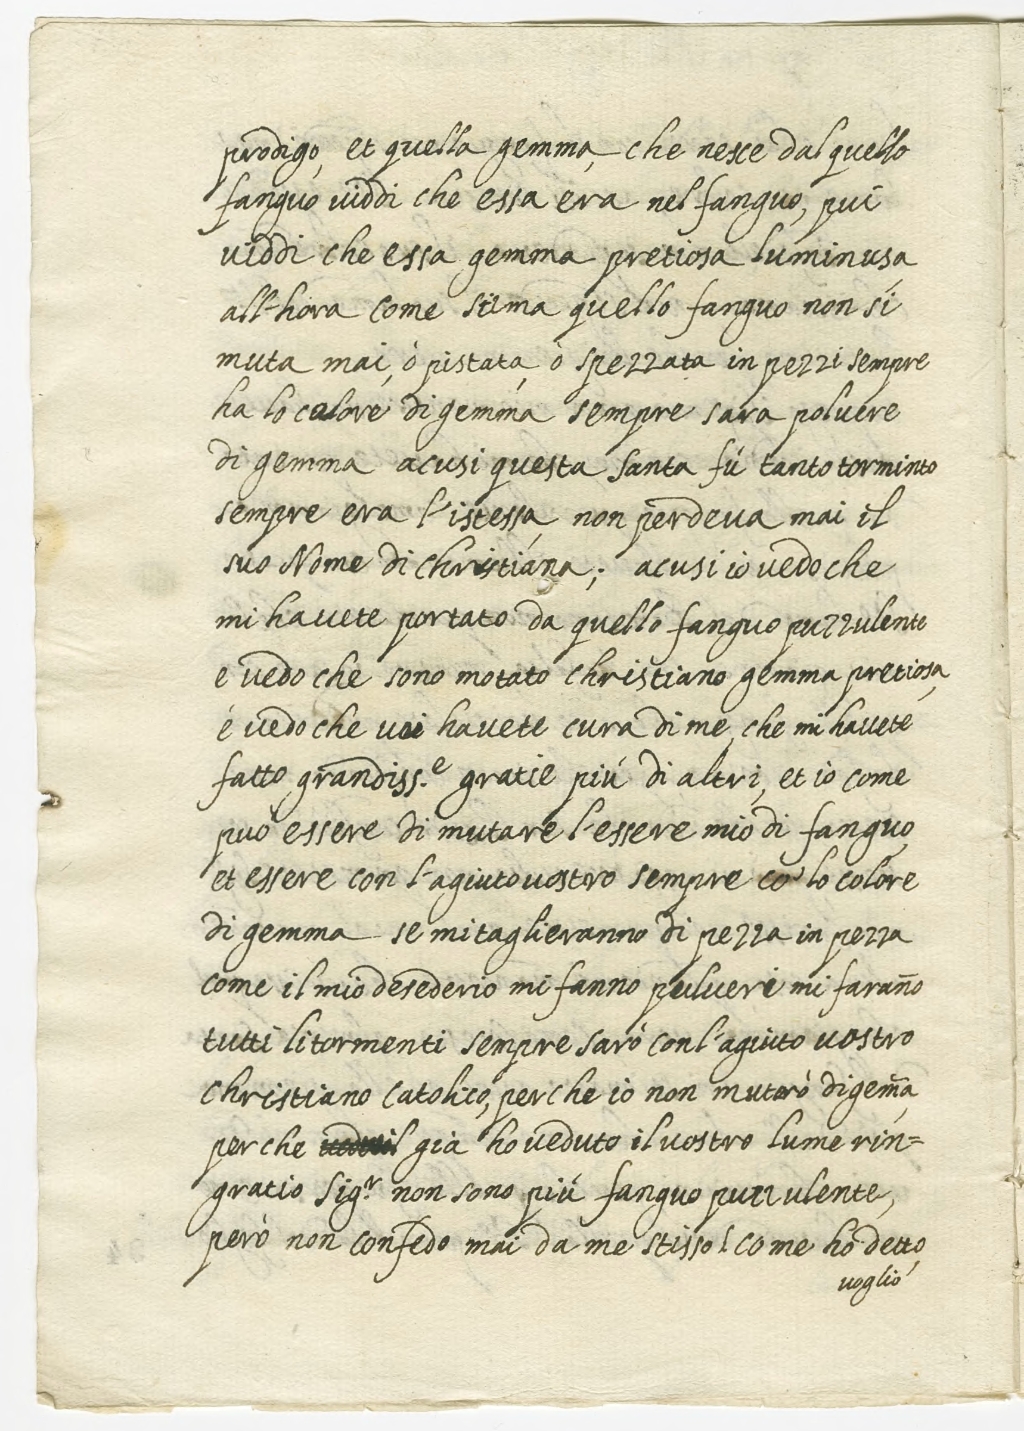 prodigo, et quella gemma, che nesce dal quello
fanguo viddi che essa era nel fanguo, pui
viddi che essa gemma pretiosa luminusa
all'hora come stima quello fanguo non si
muta mai, ò pistata, ò spezzata in pezzi sempre
ha lo colore di gemma sempre sara poluere
di gemma acusi questa santa fù tanto torminto
sempre era l'istessa, non perdeua mai il
suo Nome di Christiana; acusi io vedo che
mi hauete portato da quello fanguo puzzulente
e vedo che sono motato Christiano gemma pretiosa,
é vedo che uoi hauete cura di me, che mi hauete
fatto grandiss.e gratie più di altri, et io come
può essere di mutare l'essere mio di fanguo,
et essere con l'agiuto uostro sempre cò lo colore
di gemma se mi taglieranno di pezza in pezza
come il mio desederio mi fanno pulueri mi farañо
tutti li tormenti sempre sarò con l'agiuto uostro
Christiano Catolico, perche io non mutarò di gem̃a,
perche già ho ueduto il uostro lume rin=
gratio Sig.r non sono più fanguo puzzulente,
però non confedo mai da me stisso! come hò detto,
uoglio